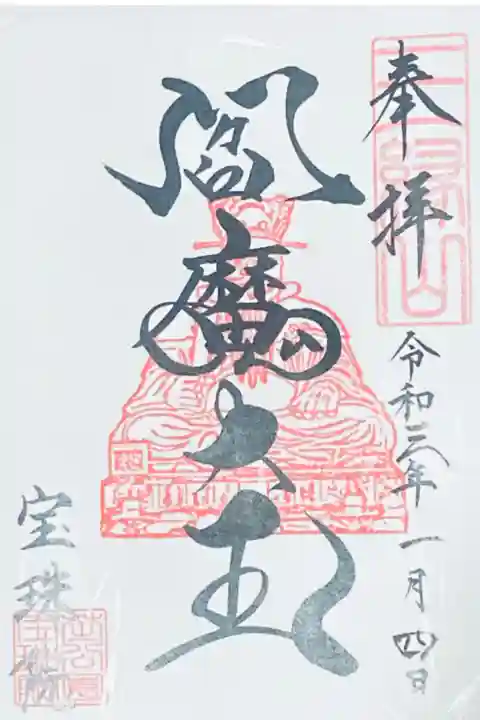 三縁山
奉拝
令和三年一月四日
閻魔大王
宝珠院